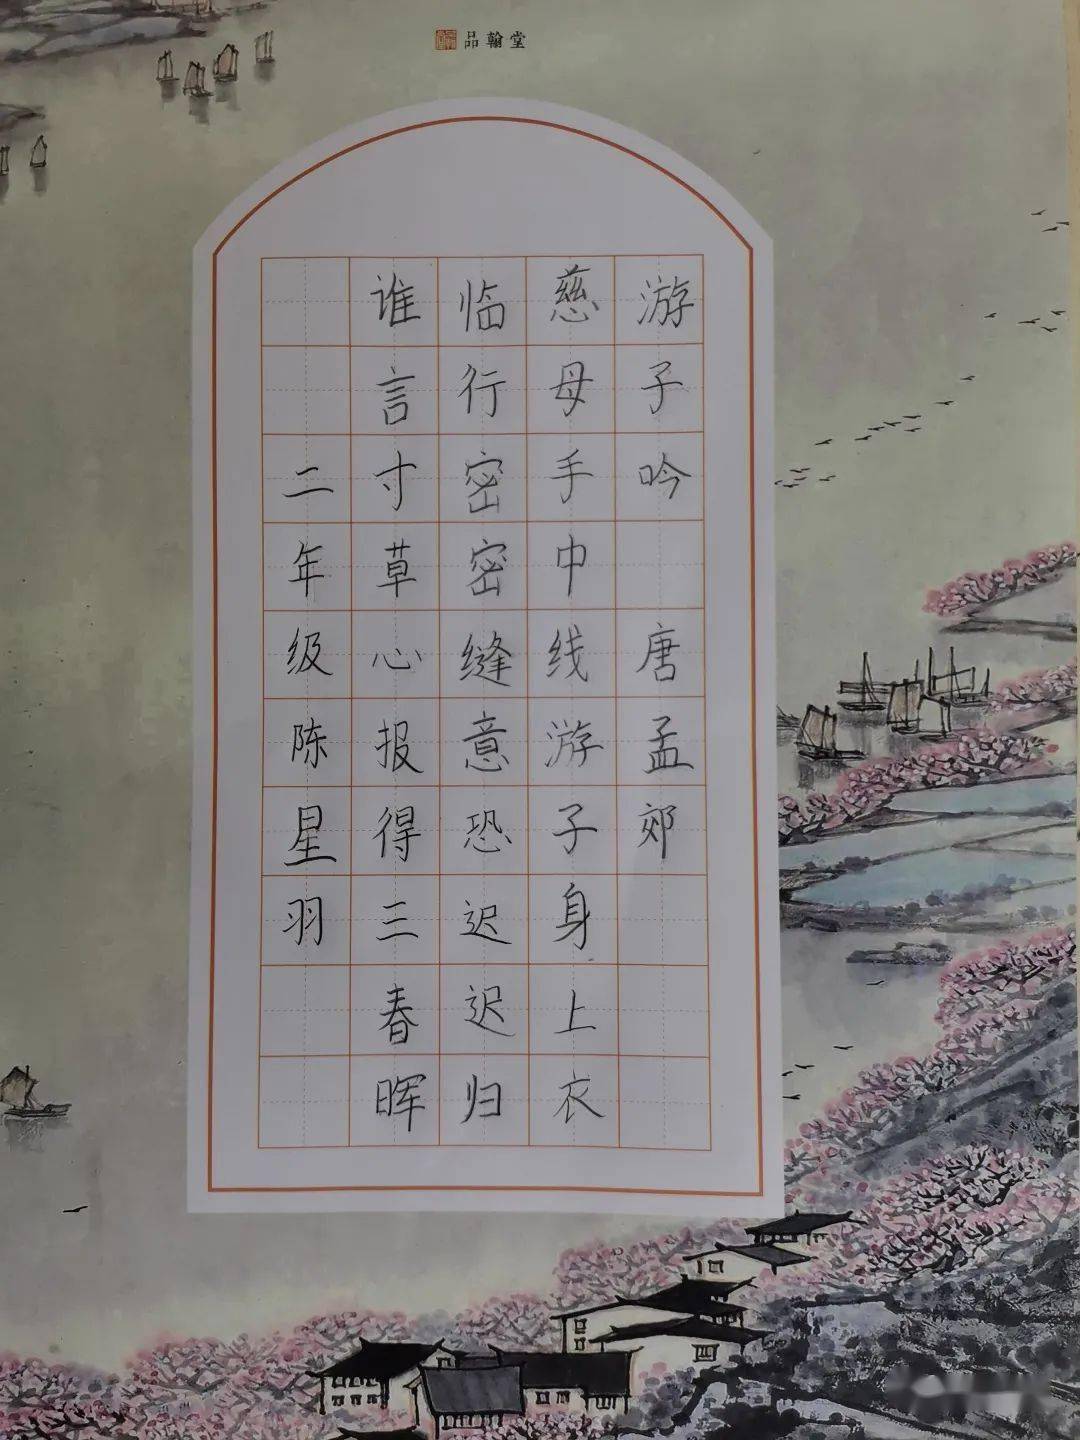 品翰堂
游子吟 唐 孟郊
慈母手中线游子身上衣
临行密密缝意恐迟迟归
谁言寸草心报得三春晖
二年级陈星羽